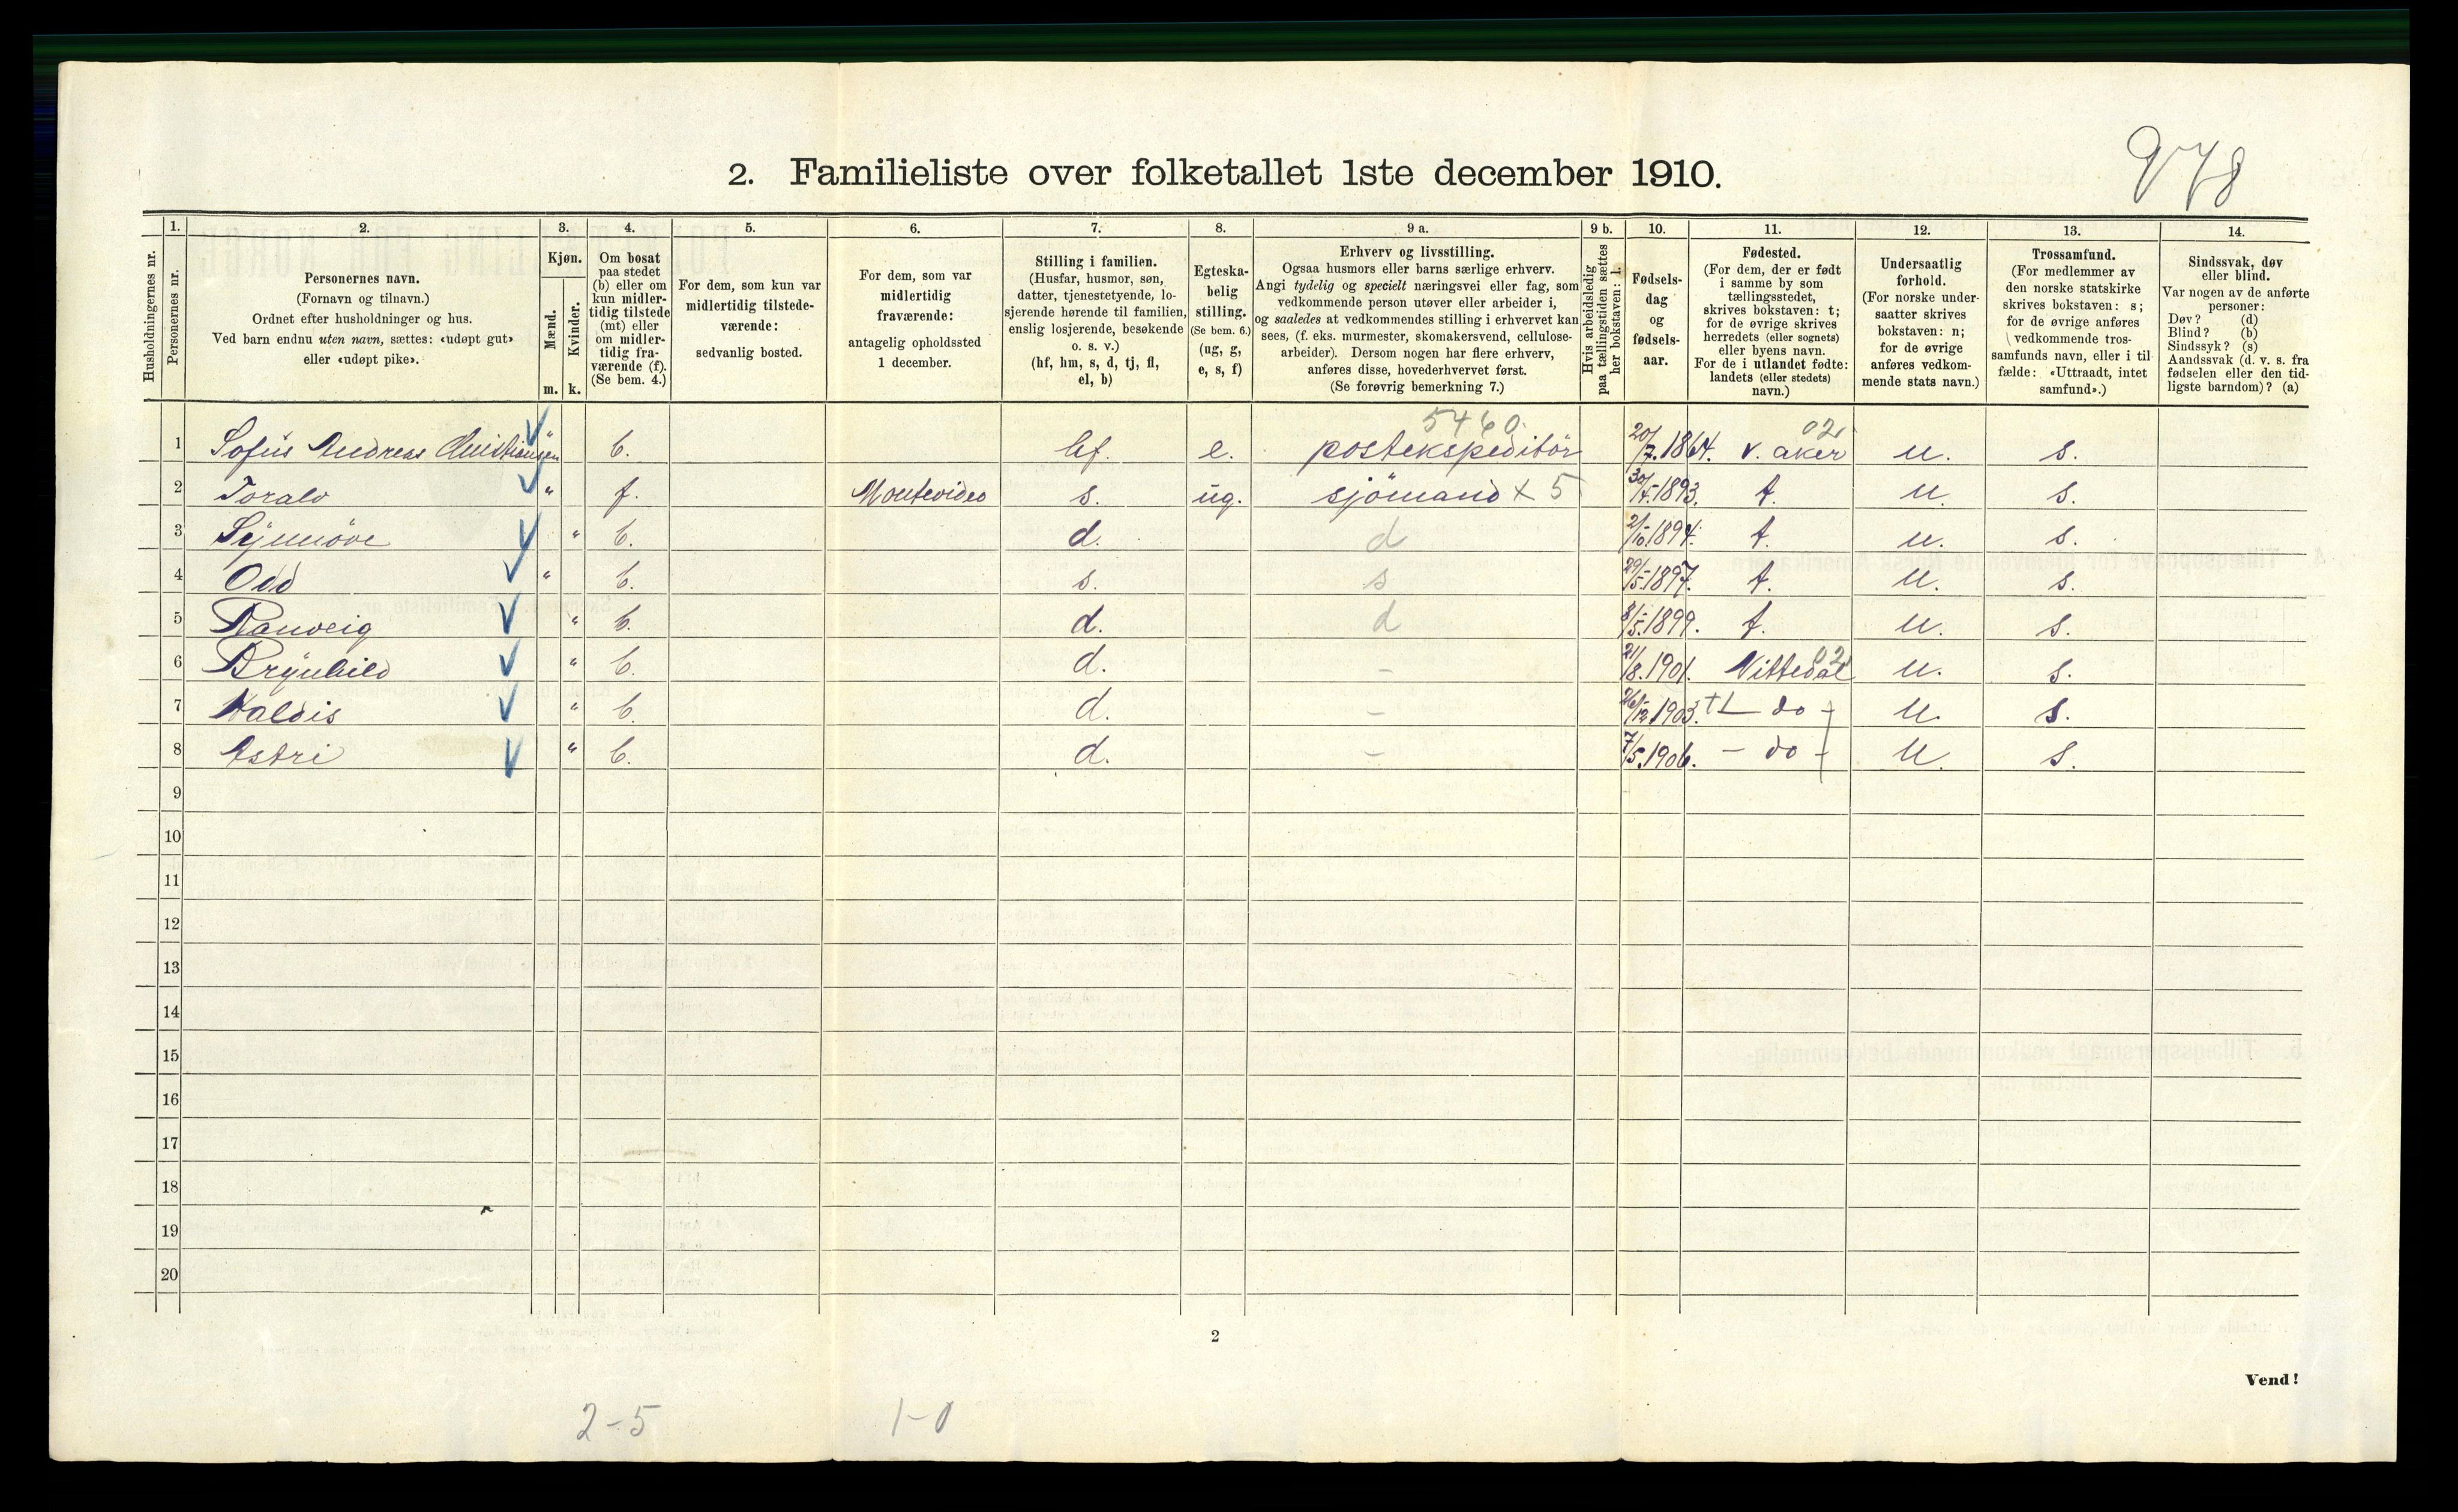 978
2. Familieliste over folketallet 1ste december 1910.
1. 2. 3. 4. 5. 6. 7. 8. 9 a. 9 b. 10. 11. 12. 13. 14.
Husholdningernes nr.
Personernes nr.
Personernes navn.
(Fornavn og tilnavn.)
Ordnet efter husholdninger og hus.
Ved barn endnu uten navn, sættes: «udøpt gut»
eller «udøpt pike».
Kjøn.
Mænd.
Kvinder.
m. k.
Om bosat
paa stedet
(b) eller om
kun midler-
tidig tilstede
(mt) eller
om midler-
tidig fra-
værende (f).
(Se bem. 4.)
For dem, som kun var
midlertidig tilstede-
værende:
sedvanlig bosted.
For dem, som var
midlertidig
fraværende:
antagelig opholdssted
1 december.
Stilling i familien.
(Husfar, husmor, søn,
datter, tjenestetyende, lo-
sjerende hørende til familien,
enslig losjerende, besøkende
o. s. v.)
(hf, hm, s, d, tj, fl,
el, b)
Egteska-
belig
stilling.
(Se bem. 6.)
(ug, g,
e, s, f)
Erhverv og livsstilling.
Ogsaa husmors eller barns særlige erhverv.
Angi tydelig og specielt næringsvei eller fag, som
vedkommende person utøver eller arbeider i,
og saaledes at vedkommendes stilling i erhvervet kan
sees, (f. eks. murmester, skomakersvend, cellulose-
arbeider). Dersom nogen har flere erhverv,
anføres disse, hovederhvervet først.
(Se forøvrig bemerkning 7.)
Hvis arbeidsledig
paa tællingstiden sættes
her bokstaven: l.
Fødsels-
dag
og
fødsels-
aar.
Fødested.
(For dem, der er født
i samme by som
tællingsstedet,
skrives bokstaven: t;
for de øvrige skrives
herredets (eller sognets)
eller byens navn.
For de i utlandet fødte:
landets (eller stedets)
navn.)
Undersaatlig
forhold.
(For norske under-
saatter skrives
bokstaven: n;
for de øvrige
anføres vedkom-
mende stats navn.)
Trossamfund.
(For medlemmer av
den norske statskirke
skrives bokstaven: s;
for de øvrige anføres
vedkommende tros-
samfunds navn, eller i til-
fælde: «Uttraadt, intet
samfund».)
Sindssvak, døv
eller blind.
Var nogen av de anførte
personer:
Døv? (d)
Blind? (b)
Sindssyk? (s)
Aandssvak (d. v. s. fra
fødselen eller den tid-
ligste barndom)? (a)
5460. 02
1 Sofus Andreas Christiansen " b. hf. e. postekspeditör 20/7.1864. v. aker n. s.
2 Toralv " f. Montevideo s. ug. sjömand x 5 30/5.1893. t. n. s.
3 Synnöve " b. d. d 2/10.1894. t. n. s.
4 Odd " b. s. s 29/5.1897. t. n. s.
5 Ranveig " b. d. d 8/5.1899. t. n. s.
02
6 Brynhild " b. d. – 21/8.1901. Nittedal n. s.
7 Haldis " b. d. – 26/12.1903. – do – n. s.
8 Astri " b. d. – 7/5.1906. – do – n. s.
9
10
11
12
13
14
15
16
17
18
19
20
2
Vend!
2-5 1-0